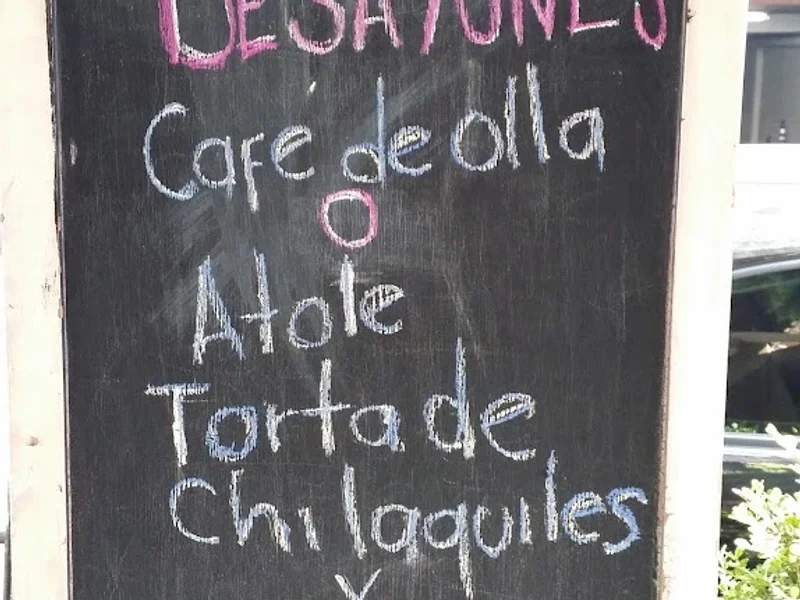 DESAYUNES
Café de olla
O
Atole
Torta de
Chilaquiles
Y